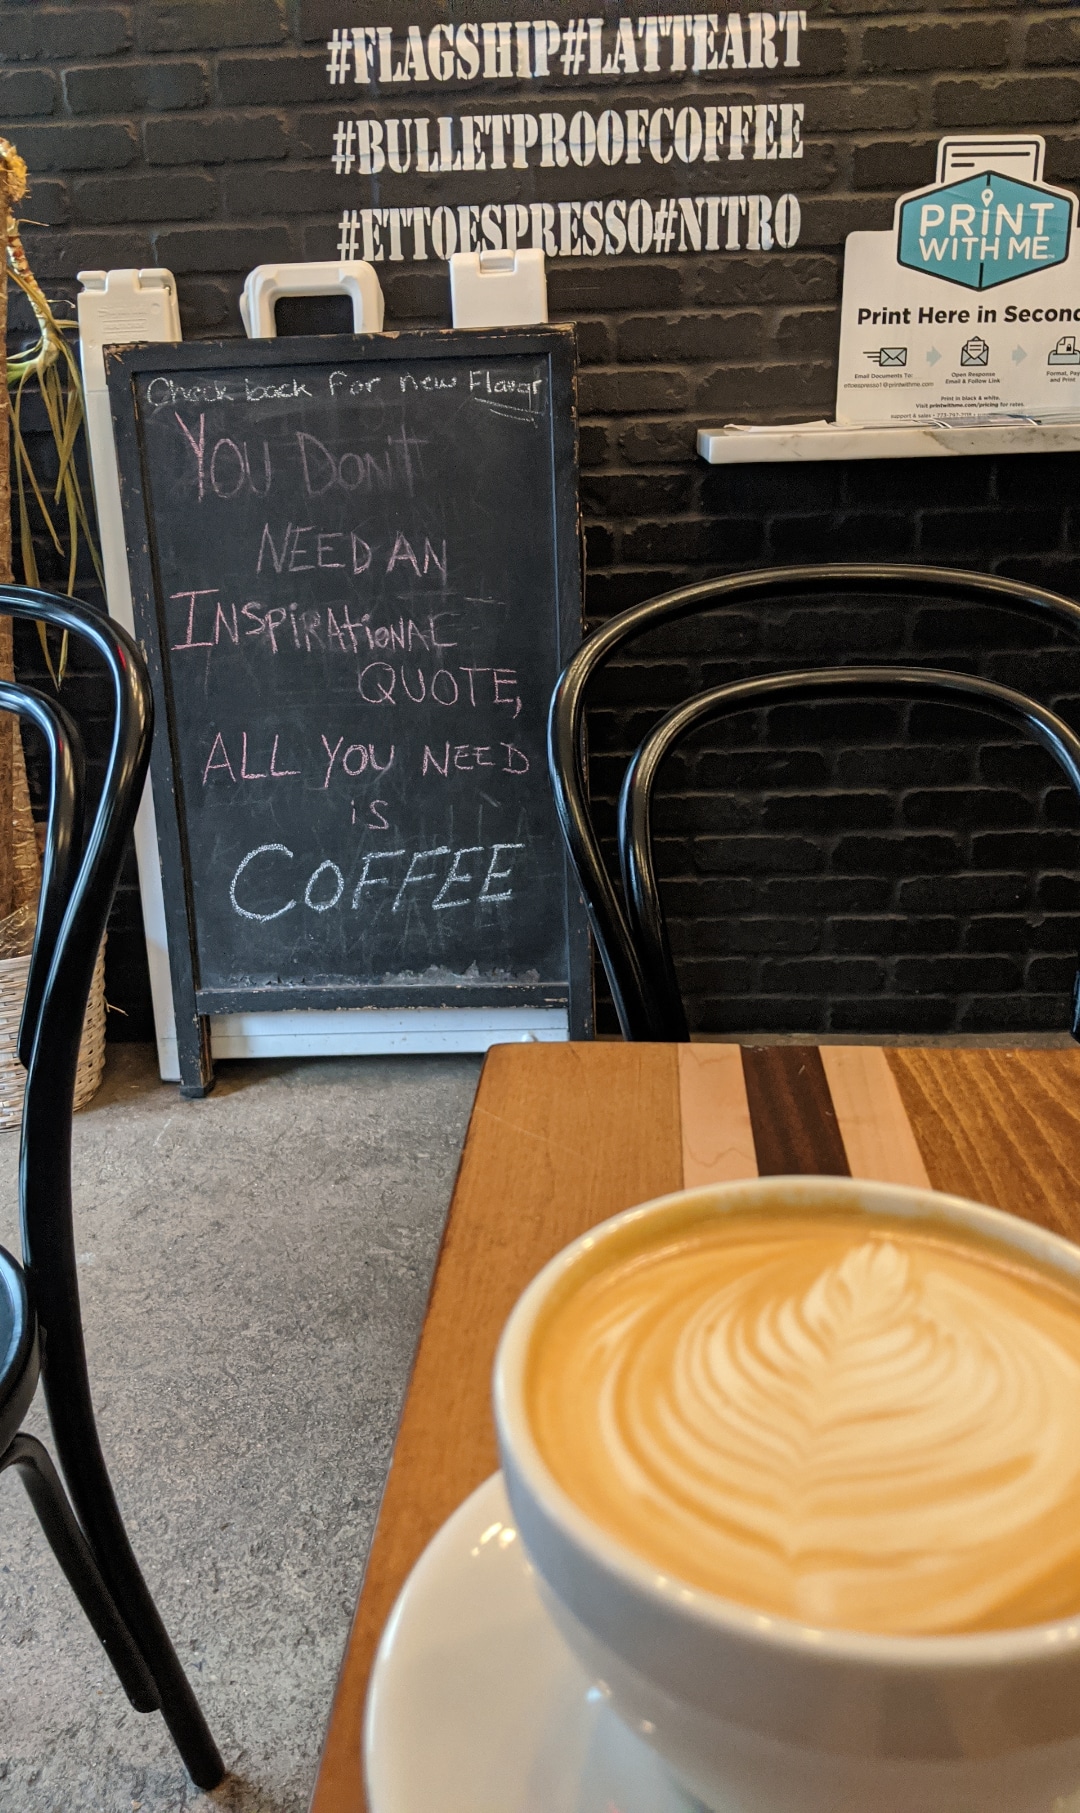 #FLAGSHIP#LATTEART
#BULLETPROOFCOFFEE
#ETTOESPRESSO#NITRO
PRINT
WITH ME
Print Here in Second
Email Documents To:
Open Response
Email & Follow Link
Format, Pay
and Print
Print in black & white.
Visit printwithme.com/pricing for rates.
Check back for new Flavor
YOU DON'T
NEED AN
INSPIRATIONAL
QUOTE,
ALL YOU NEED
is
COFFEE